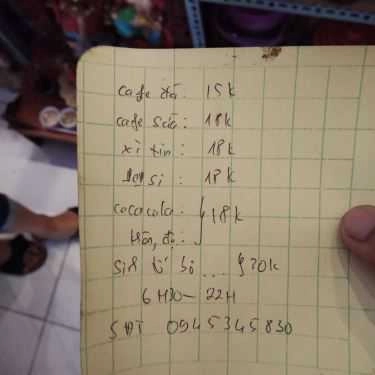 cafe đá: 15k
cafe sữa: 18k
xì tin: 18k
pepsi: 18k
cocacola: 18k
sinh tố bơ... 20k
6H30 - 22H
SĐT 0945345830